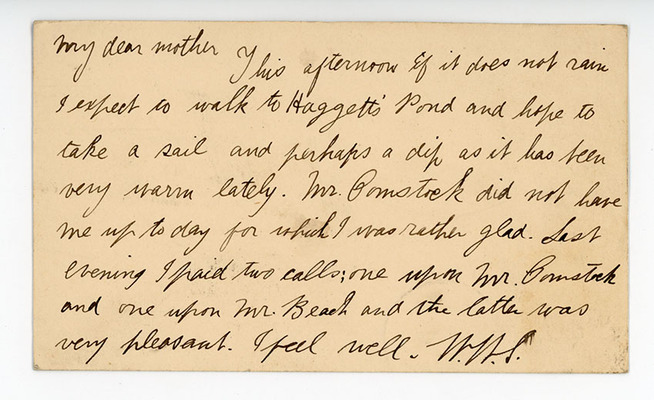 My dear mother This afternoon If it does not rain
I expect to walk to Haggett's Pond and hope to
take a sail and perhaps a dip as it has been
very warm lately. Mr. Comstock did not have
me up today for which I was rather glad. Last
evening I paid two calls; one upon Mr. Comstock
and one upon Mr. Beach and the latter was
very pleasant. I feel well. W.W.S.